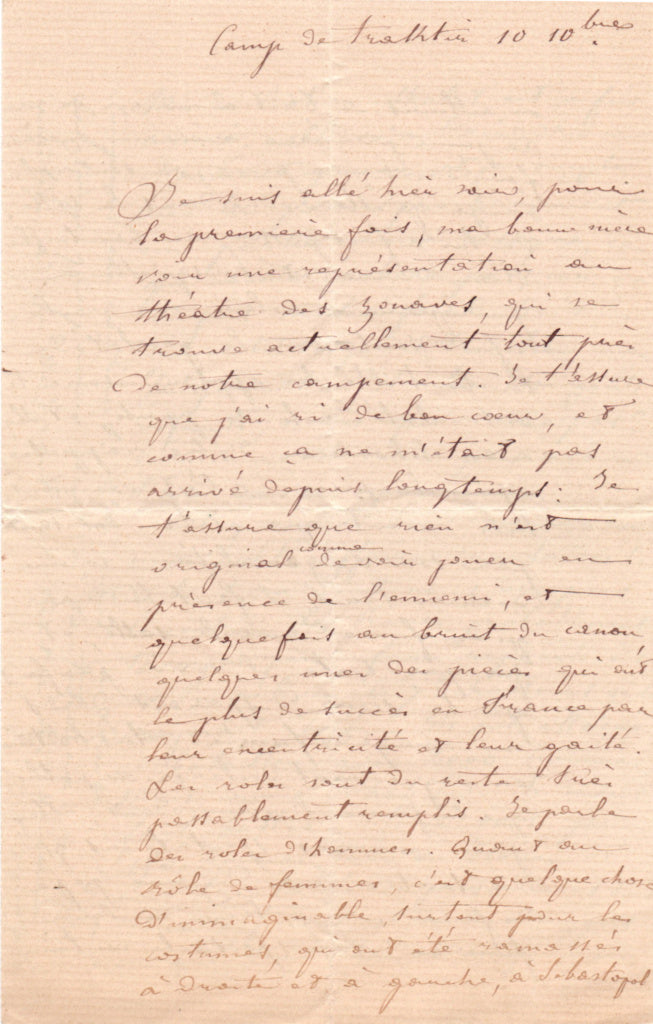 Camp de traktir 10 10bre.
Je suis allé hier soir, pour
la première fois, ma bonne mère
voir une représentation au
théatre des Zouaves, qui se
trouve actuellement tout près
de notre campement. Je t'assure
que j'ai ri de bon coeur, et
comme ça ne m'était pas
arrivé depuis longtemps. Je
t'assure que rien n'est
original comme de voir jouer en
présence de l'ennemi, et
quelquefois au bruit du canon,
quelques unes des pièces qui ont
le plus de succès en France par
leur excentricité et leur gaité.
Les roles sont du reste très
passablement remplis. Je parle
des roles d'hommes. Quant au
rôle de femmes, c'est quelque chose
d'inimaginable, surtout pour les
costumes, qui ont été ramassés
à droite et à gauche, à Sebastopol